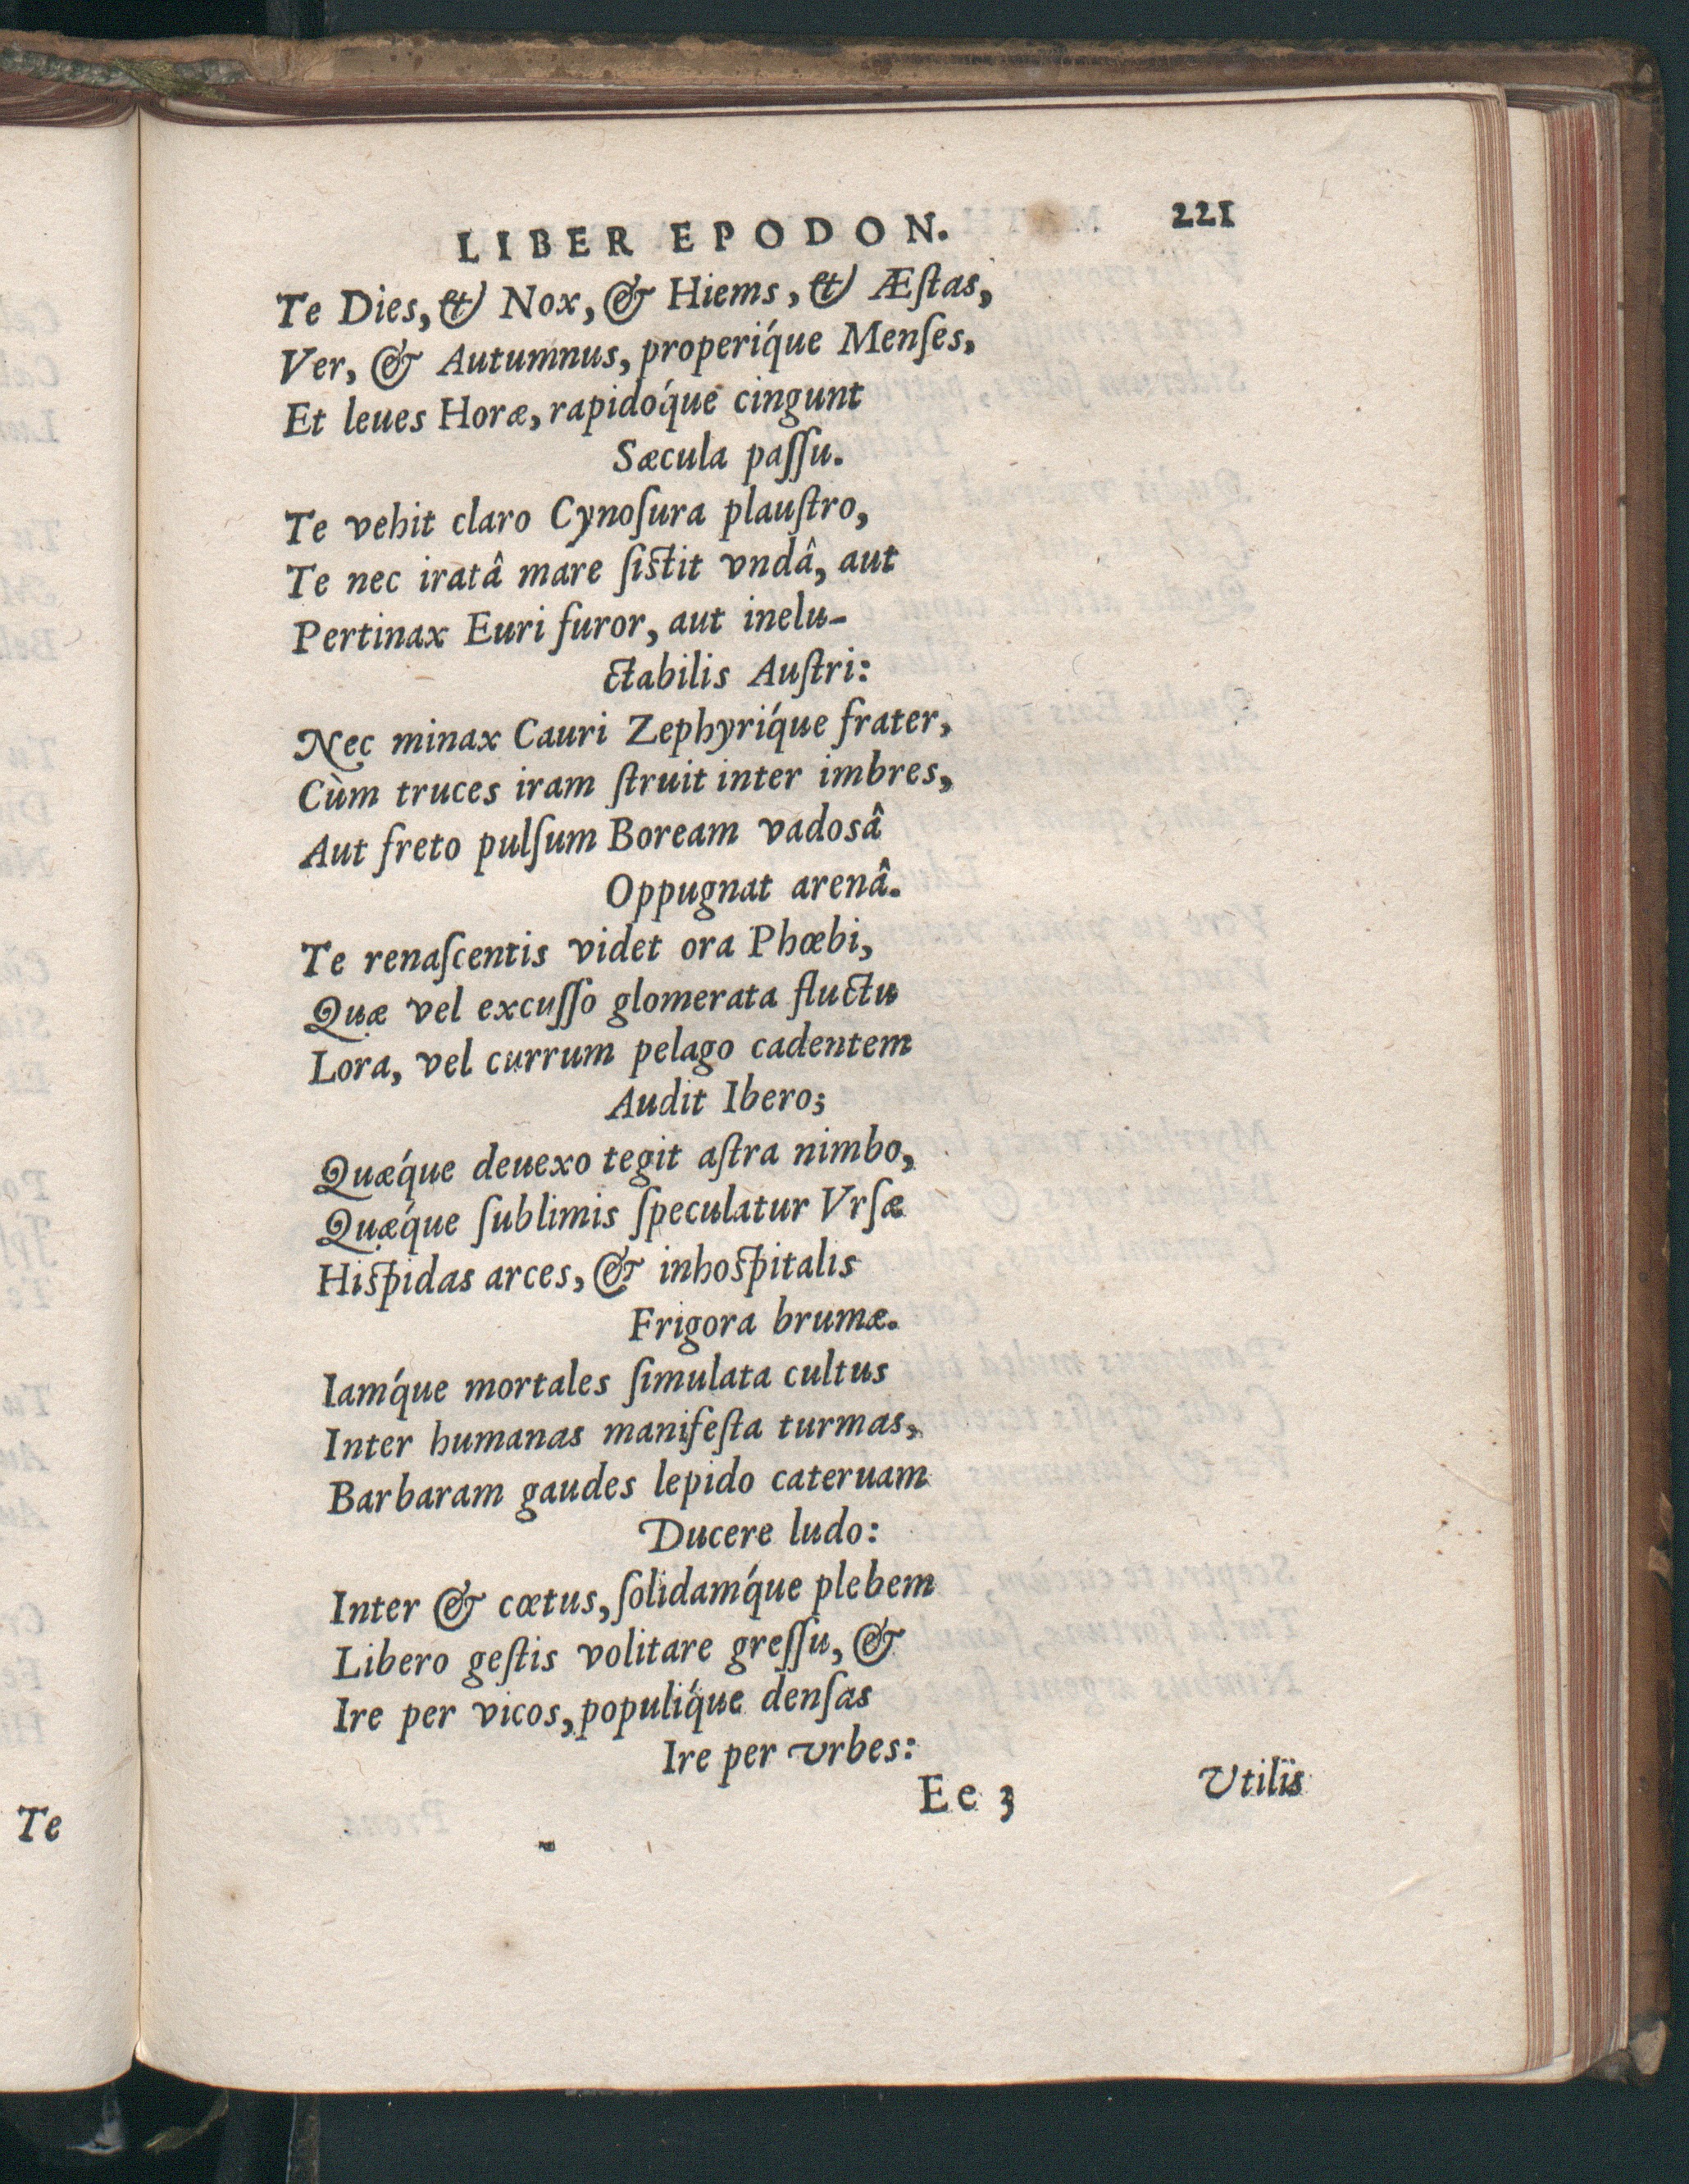 LIBER EPODON. 221
Te Dies, & Nox, & Hiems, & Æſtas,
Ver, & Autumnus, properíque Menſes,
Et leues Horæ, rapidóque cingunt
Sæcula paſſu.
Te vehit claro Cynoſura plauſtro,
Te nec iratâ mare ſiſtit vndâ, aut
Pertinax Euri furor, aut inelu-
ctabilis Auſtri:
Nec minax Cauri Zephyríque frater,
Cùm truces iram ſtruit inter imbres,
Aut freto pulſum Boream vadosâ
Oppugnat arenâ.
Te renaſcentis videt ora Phœbi,
Quæ vel excuſſo glomerata fluctu
Lora, vel currum pelago cadentem
Audit Ibero;
Quæque deuexo tegit aſtra nimbo,
Quæque ſublimis ſpeculatur Vrſæ
Hiſpidas arces, & inhoſpitalis
Frigora brumæ.
Iamque mortales ſimulata cultus
Inter humanas manifeſta turmas,
Barbaram gaudes lepido cateruam
Ducere ludo:
Inter & cœtus, ſolidamque plebem
Libero geſtis volitare greſſu, &
Ire per vicos, populíque denſas
Ire per vrbes:
Ee 3 Vtilis
Te